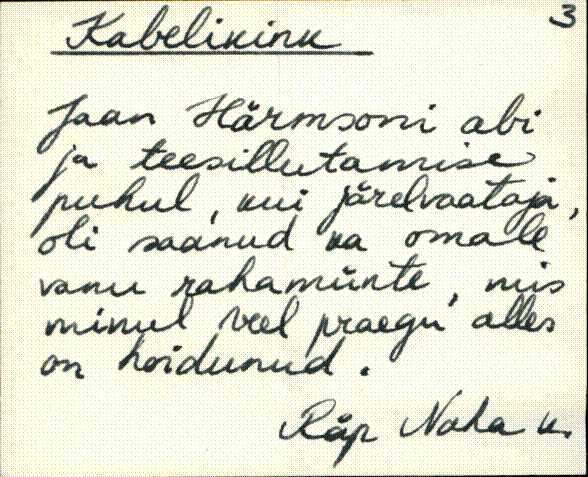 3
Kabelikink
Jaan Härmsoni abi
ja teesillutamise
puhul, kui järelvaataja,
oli saanud ka omale
vanu rahamünte, mis
minul veel praegu alles
on hoidunud.
Räp Naha k.